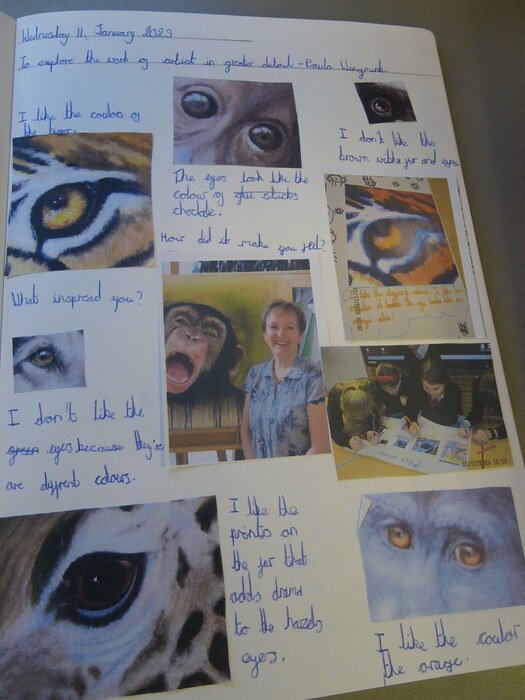 Wednesday 11, January 2023
To explore the work of artist in greater detail - Paula Wiegmink
I like the coulors of
the tiger.
I don't like the
brown withe fur and eyes
The eyes look like the
colour of glue sticks
choclate.
How did it make you feel?
What inspread you?
I don't like the
green eyes because they're
are diffrent colours.
I like the
prints on
the fur that
adds drama
to the hazels
eyes.
I like the coulor
the orage.